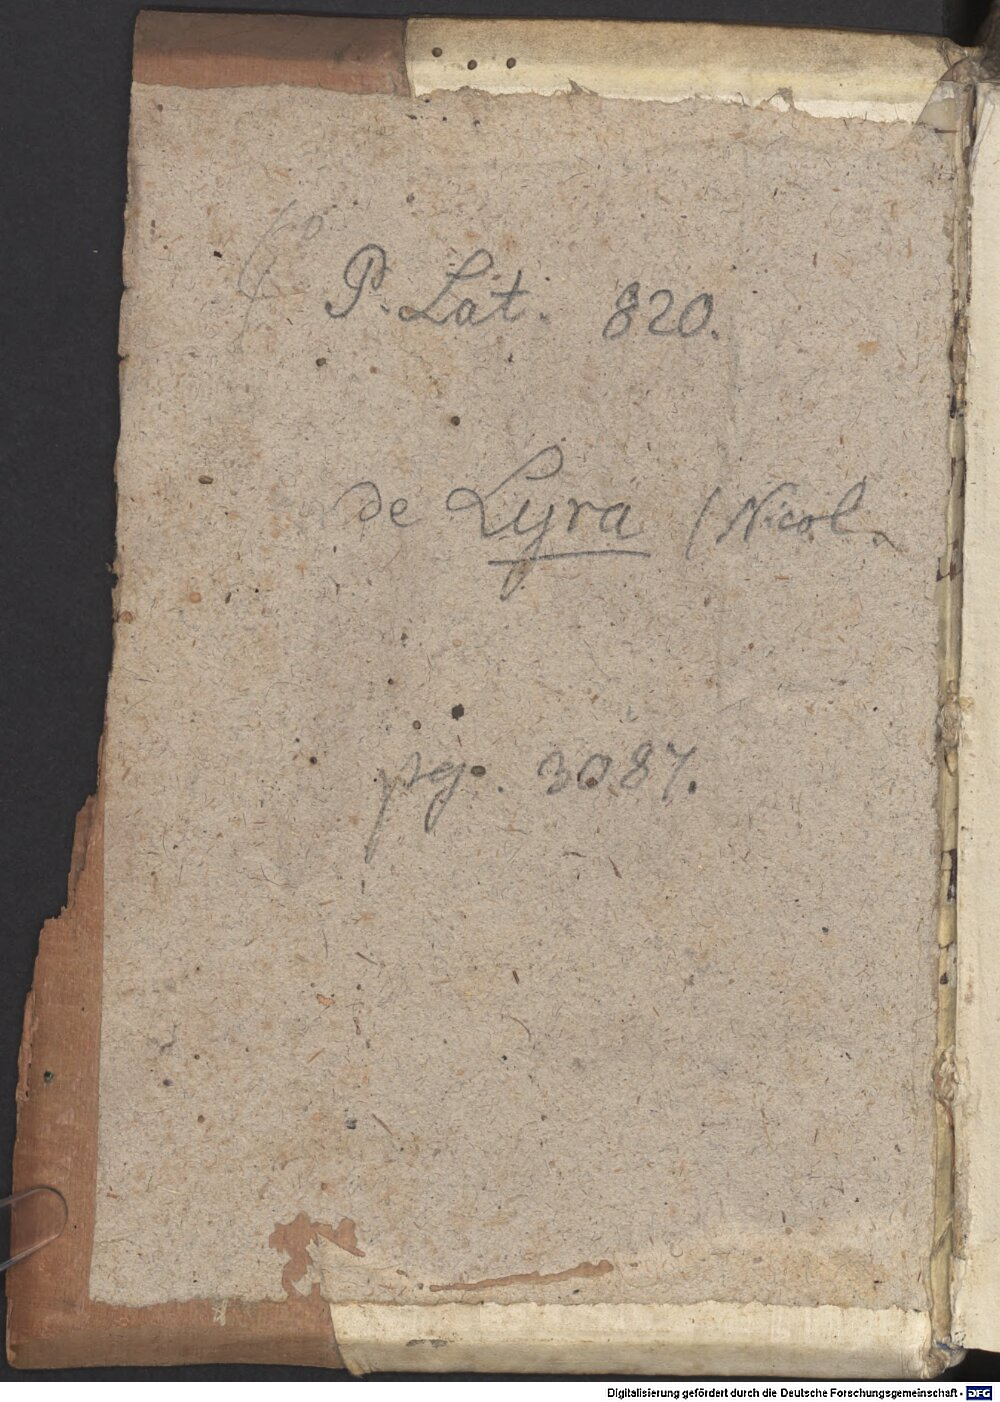 P. Lat. 820.
de Lyra (Nicol.
pg. 3087.
Digitalisierung gefördert durch die Deutsche Forschungsgemeinschaft - DFG